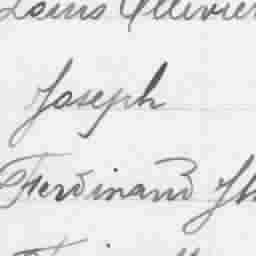 Louis Ollivier
Joseph
Ferdinand